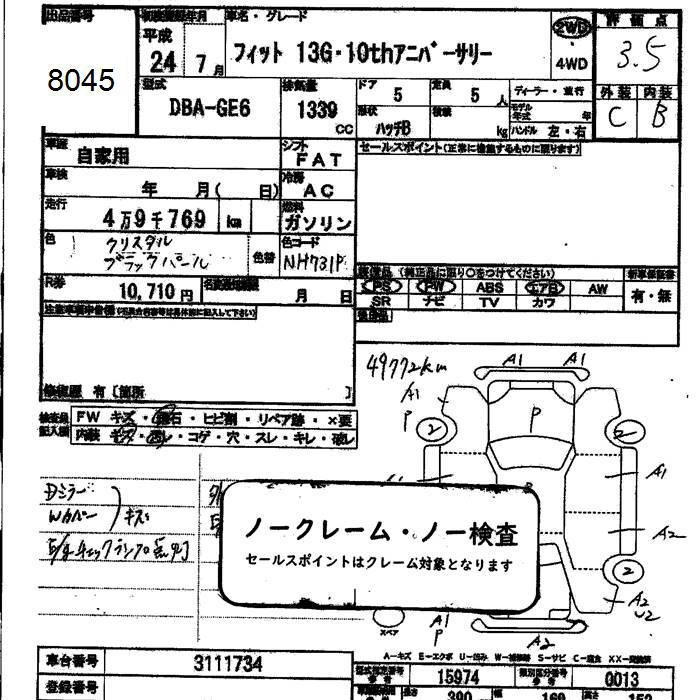 出品番号
8045
初検査年月
平成
24 7月
車名・グレード
フィット 13G・10thアニバーサリー
2WD
4WD
評価点
3.5
外装 内装
C B
型式
DBA-GE6
排気量
1339
CC
ドア
5
形状
ハッチB
定員
5 人
積載
kg
ディーラー・並行
モデル年式 年
ハンドル 左・右
車歴
自家用
シフト
FAT
セールスポイント(正常に機能するものに限ります)
車検
年 月( 日)
冷房
AC
走行
4万9千769 km
燃料
ガソリン
色
クリスタル
ブラックパール
色替
色コード
NH731P
R券
10,710円
月 日
装備品 (純正品に限り○をつけてください)
PS PW ABS エアB AW
SR ナビ TV カワ
新車保証書
有・無
修復歴 有〔箇所 〕
検査員
記入欄
FW キズ・飛石・ヒビ割・リペア跡・×要
内装 キズ・汚レ・コゲ・穴・スレ・キレ・凹レ
49772km
A1 A1
A1
P
P
2 2
A1
A2
2
A2
U2
A1
P
A2
スペア
Dミラー
Wカバー
キズ
E/gチェックランプ点灯
ノークレーム・ノー検査
セールスポイントはクレーム対象となります
A-キズ E-エクボ U-凹み W-補修跡 S-サビ C-腐食 XX-交換済
車台番号
3111734
登録番号
型式指定番号
15974
類別区分番号
0013
長さ
390
幅
169
高さ
152